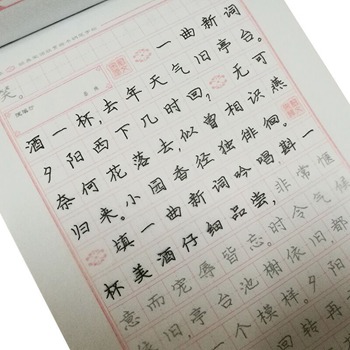 笑。
一曲新词
酒一杯，去年天气旧亭台。
夕阳西下几时回，无可
奈何花落去，似曾相识燕
归来。小园香径独徘徊。
填一曲新词吟唱斟一
杯美酒仔细品尝，非常惬
意而宠辱皆忘。时令气候
依旧，亭台池榭依旧，都
一个模样。夕阳
回转再